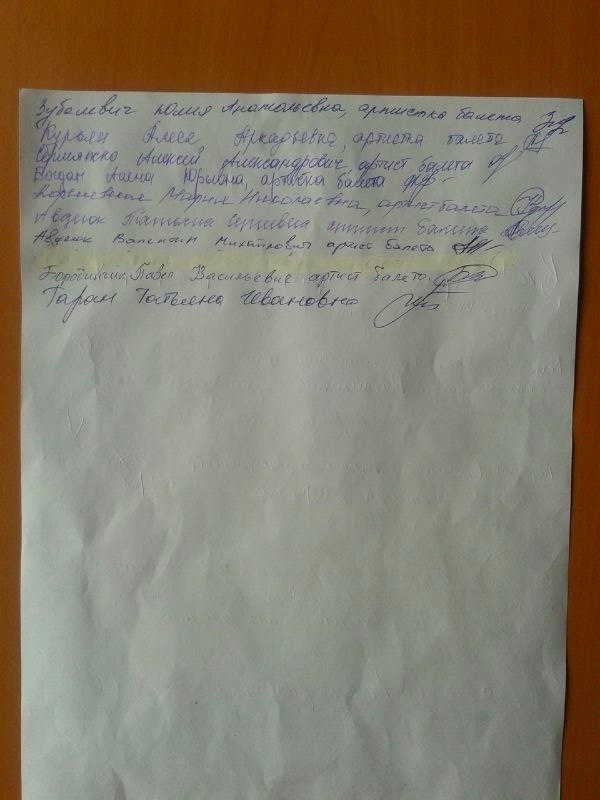 Зубелевич Юлия Анатольевна, артистка балета
Алеся Аркадьевна, артистка балета
Алексей Александрович, артист балета
Богдан Алена Юрьевна, артистка балета
Мария Николаевна, артист балета
Авдеюк Татьяна Сергеевна артист балета
Авдеюк Валентин Михайлович артист балета
Бородинчик Павел Васильевич артист балета.
Таран Татьяна Ивановна